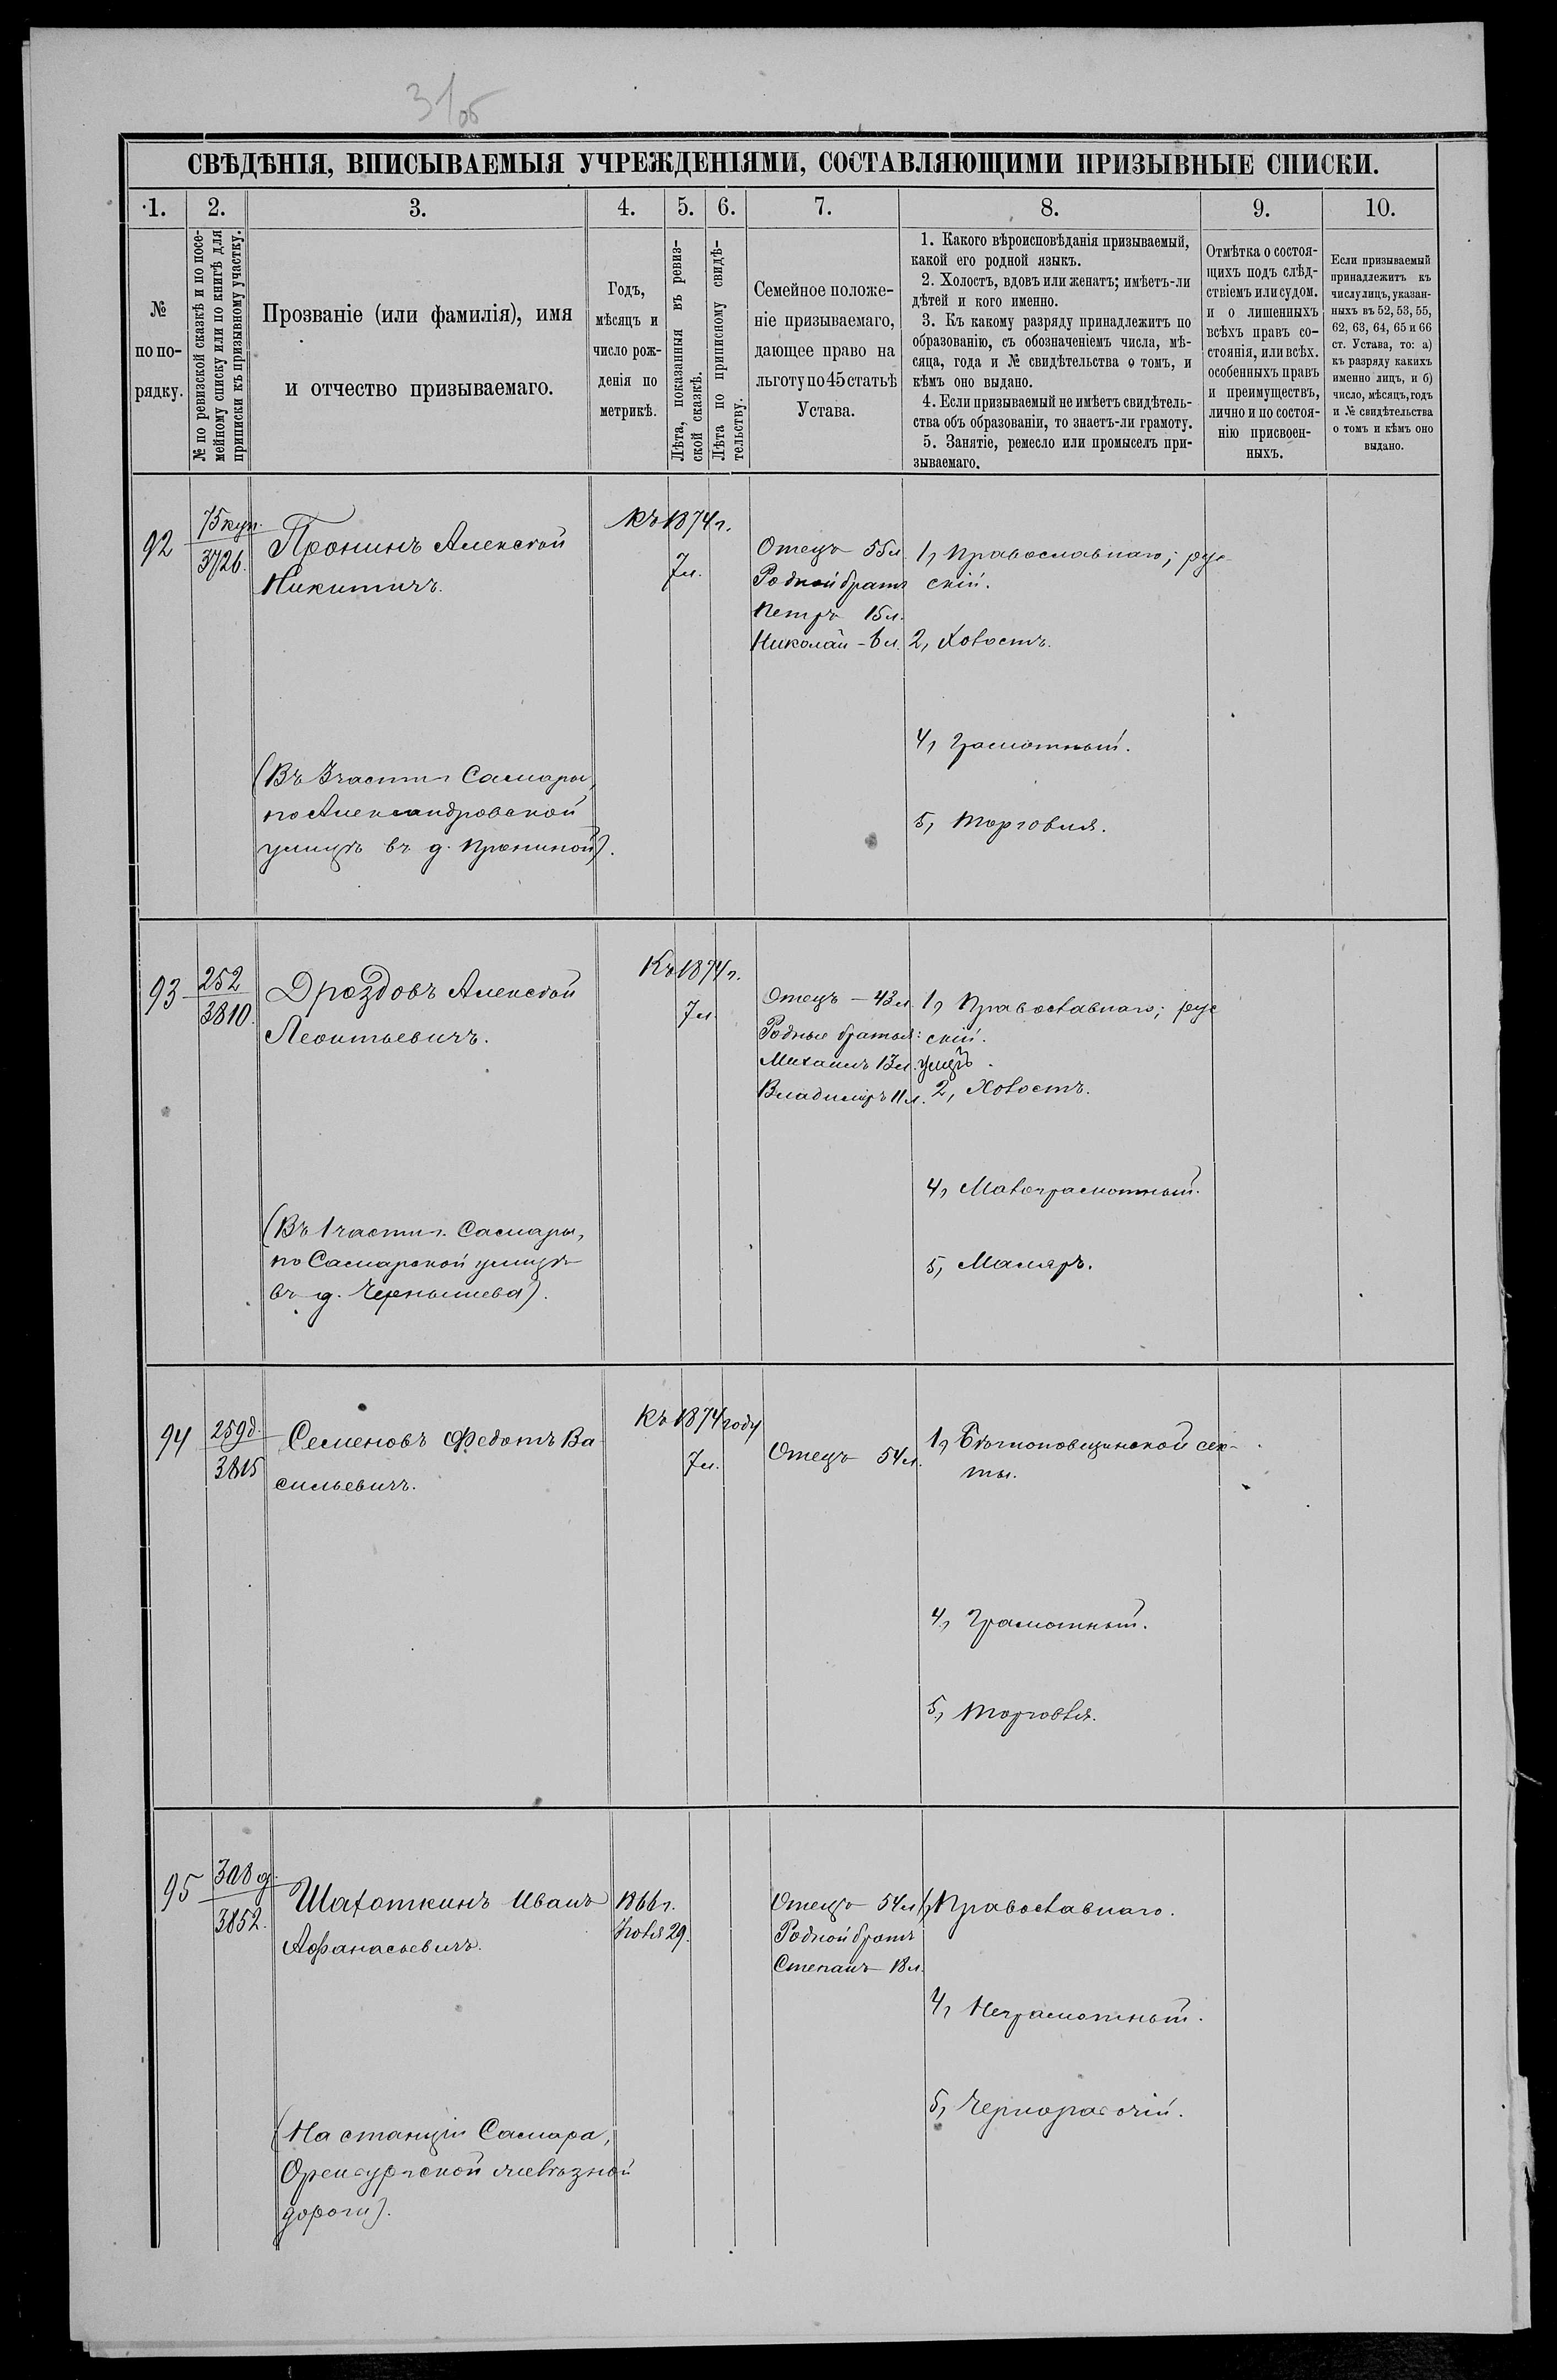 31об
СВѢДѢНІЯ, ВПИСЫВАЕМЫЯ УЧРЕЖДЕНІЯМИ, СОСТАВЛЯЮЩИМИ ПРИЗЫВНЫЕ СПИСКИ.
1. 2. 3. 4. 5. 6. 7. 8. 9. 10.
№
по по-
рядку.
№ по ревизской сказкѣ и по посе-
мейному списку или по книгѣ для
приписки къ призывному участку.
Прозваніе (или фамилія), имя
и отчество призываемаго.
Годъ,
мѣсяцъ и
число рож-
денія по
метрикѣ.
Лѣта, показанныя въ ревиз-
ской сказкѣ.
Лѣта по приписному свидѣ-
тельству.
Семейное положе-
ніе призываемаго,
дающее право на
льготу по 45 статьѣ
Устава.
1. Какого вѣроисповѣданія призываемый,
какой его родной языкъ.
2. Холостъ, вдовъ или женатъ; имѣетъ-ли
дѣтей и кого именно.
3. Къ какому разряду принадлежитъ по
образованію, съ обозначеніемъ числа, мѣ-
сяца, года и № свидѣтельства о томъ, и
кѣмъ оно выдано.
4. Если призываемый не имѣетъ свидѣтель-
ства объ образованіи, то знаетъ-ли грамоту.
5. Занятіе, ремесло или промыселъ при-
зываемаго.
Отмѣтка о состоя-
щихъ подъ слѣд-
ствіемъ или судом.
и о лишенныхъ
всѣхъ правъ со-
стоянія, или всѣх.
особенныхъ правъ
и преимуществъ,
лично и по состоя-
нію присвоен-
ныхъ.
Если призываемый
принадлежитъ къ
числу лицъ, указан-
ныхъ въ 52, 53, 55,
62, 63, 64, 65 и 66
ст. Устава, то: а)
къ разряду какихъ
именно лицъ, и б)
число, мѣсяцъ, годъ
и № свидѣтельства
о томъ и кѣмъ оно
выдано.
92
75 куп.
3726.
Пронинъ Алексѣй
Никитичъ.
(Въ 3 части г. Самары,
по Александровской
улицѣ въ д. Прониной).
Къ 1874 г.
7 л.
Отецъ 55 л.
Родной братъ
Петръ 15 л.
Николай - 6 л.
1, Православнаго; рус-
скій.
2, Холостъ.
4, Грамотный.
5, Торговля.
93
252
3810.
Дроздовъ Алексѣй
Леонтьевичъ.
(Въ 1 части г. Самары,
по Самарской улицѣ
въ д. Чернышева).
Къ 1874 г.
7 л.
Отецъ - 43 л.
Родные братья:
Михаилъ 13 л.
Владиміръ 11 л.
1, Православнаго; рус
скій.
2, Холостъ.
4, Малограмотный.
5, Маляръ.
94
259 д.
3815
Семеновъ Федотъ Ва
сильевичъ.
Къ 1874 году
7 л.
Отецъ 54 л.
1, Бѣгпоповщинской сек-
ты.
4, Грамотный.
5, Торговля.
95
308 д.
3852.
Шахоткинъ Иванъ
Афанасьевичъ.
(На станціи Самара,
Оренбургской желѣзной
дороги).
1866 г.
Іюля 29.
Отецъ 54 л.
Родной братъ
Степанъ 18 л.
1, Православнаго.
4, Неграмотный.
5, Чернорабочій.